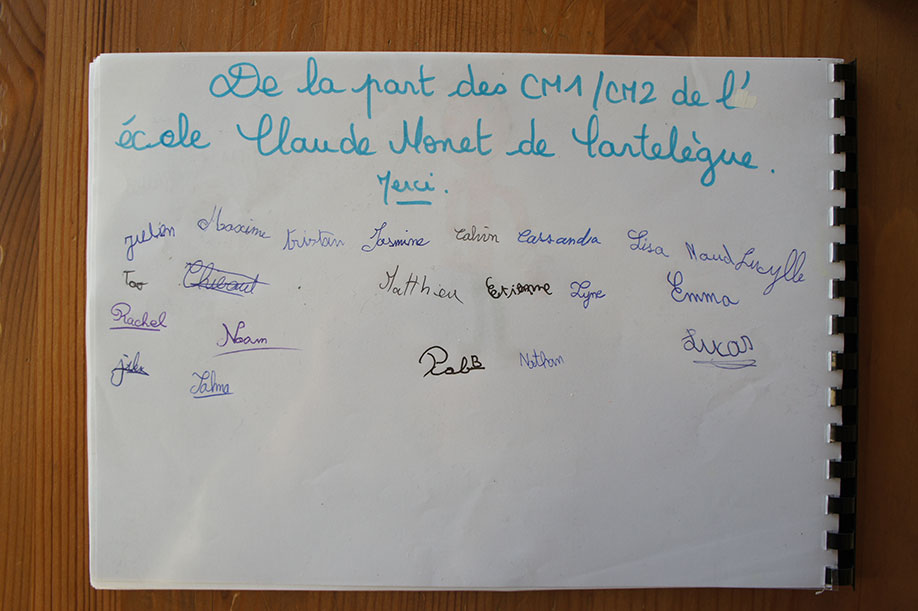 De la part des CM1/CM2 de l'
école Claude Monet de Cartelègue.
Merci.
Julien Maxime tristan Jasmine Calvin Cassandra Lisa Maud Lucylle
Tao Thibaut Matthieu Etienne Lyne Emma
Rachel Noam Lucas
Nathan